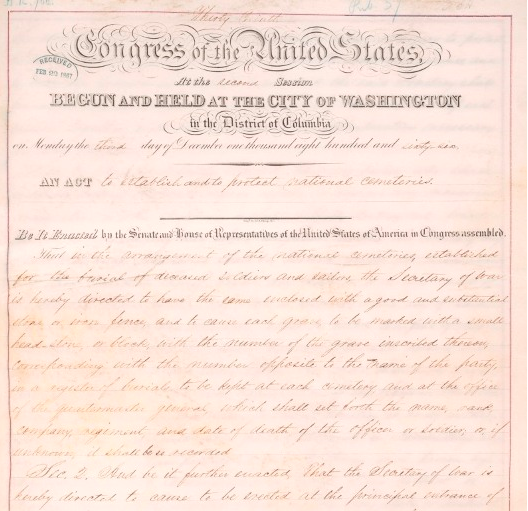 Thirty Ninth
Congress of the United States,
RECEIVED
FEB 1867
At the second Session
BEGUN AND HELD AT THE CITY OF WASHINGTON
in the District of Columbia
on Monday the third day of December one thousand eight hundred and sixty-six
AN ACT to establish and to protect national cemeteries.
Be It Enacted by the Senate and House of Representatives of the United States of America in Congress assembled.
That in the arrangement of the national cemeteries, established
for the burial of deceased soldiers and sailors, the Secretary of War
is hereby directed to have the same enclosed with a good and substantial
stone or iron fence, and to cause each grave to be marked with a small
head-stone, or block, with the number of the grave inscribed thereon,
corresponding with the number opposite to the name of the party,
in a register of burials to be kept at each cemetery and at the office
of the quartermaster general, which shall set forth the name, rank,
company, regiment, and date of death of the officer or soldier; or, if
unknown, it shall be so recorded
Sec. 2. And be it further enacted, That the Secretary of War is
hereby directed to cause to be erected at the principal entrance of